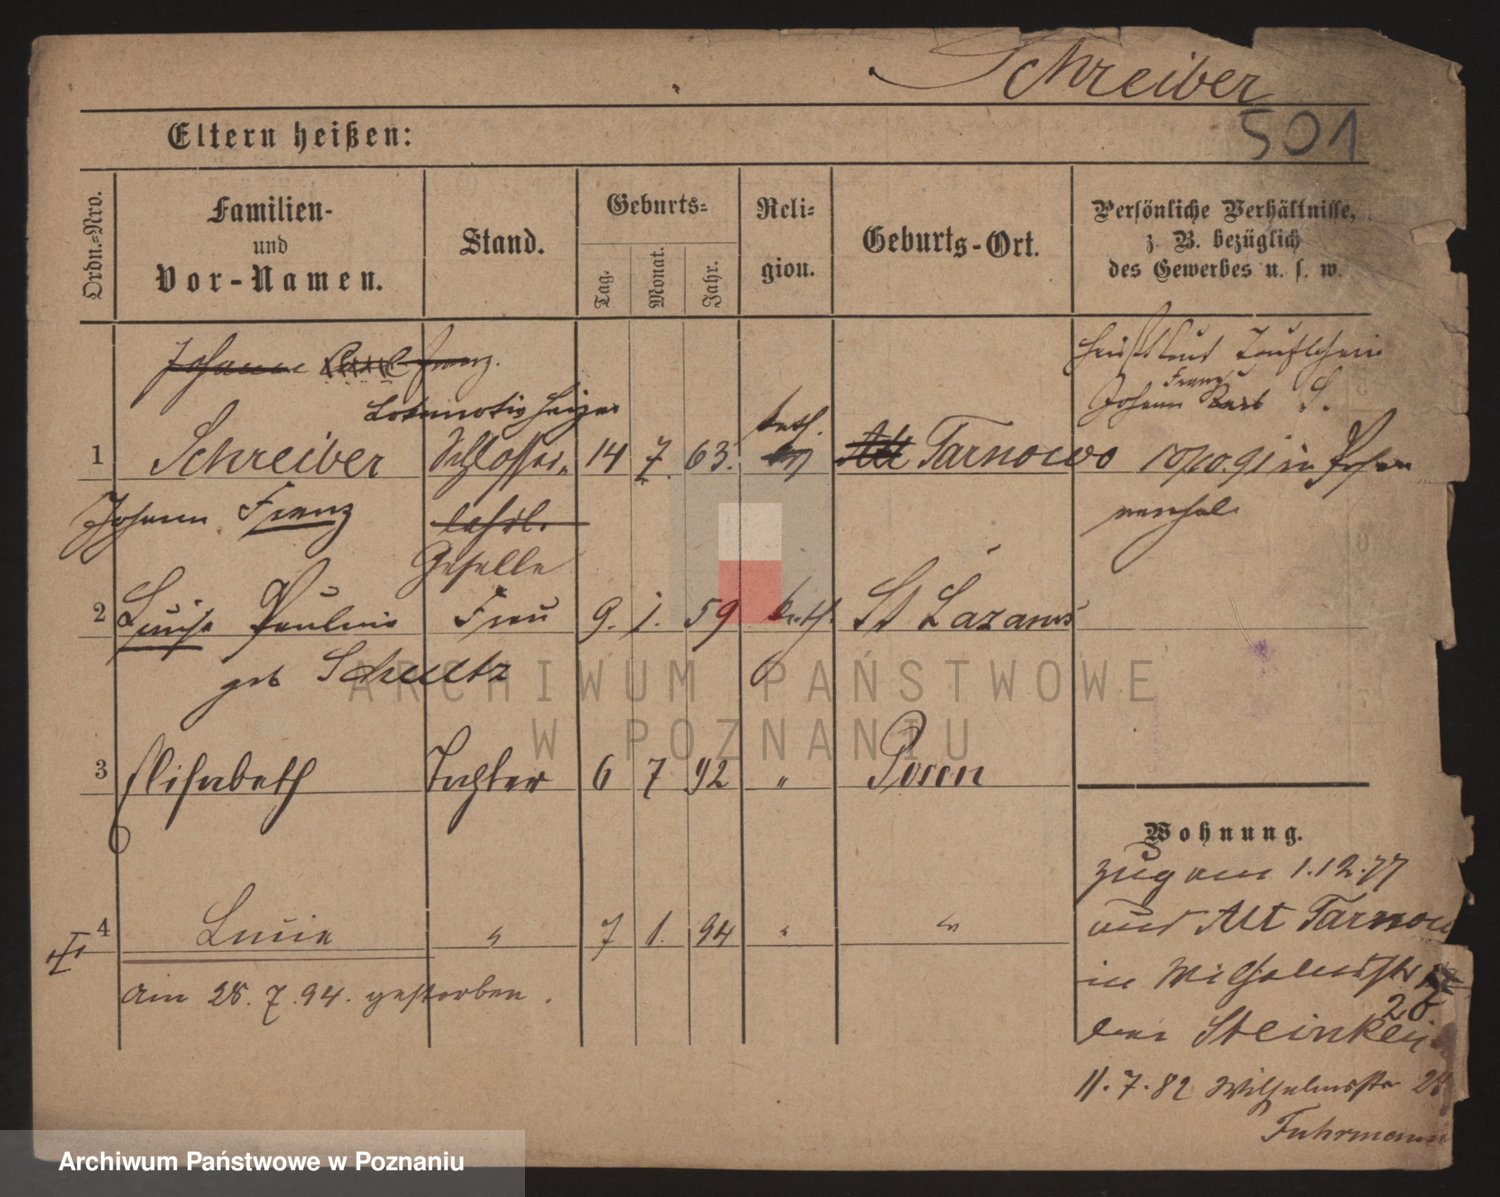 Schreiber
501
Eltern heißen:
Ordn.=Nro.
Familien-
und
Vor-Namen.
Stand.
Geburts=
Tag.
Monat.
Jahr.
Reli=
gion.
Geburts-Ort.
Persönliche Verhältnisse,
z. B. bezüglich
des Gewerbes u. s. w.
Johann Carl Franz.
heißt laut Taufschein
Franz
Johann Karl S.
Lokomotiv Heizer
kath.
1 Schreiber Schlosser 14 7. 63. Alt Tarnowo 10/10.91 in Posen
Johann Franz lehrl.
Geselle
2 Luise Pauline Frau 9. 1. 59 kath. St Lazarus
geb Schultz
3 Elisabeth Tochter 6 7 92 " Posen
4 Lucie " 7 1. 94 " "
am 28. 7. 94. gestorben.
Wohnung.
zug am 1.12.77
aus Alt Tarnowo
in Wilhelmstr
26
bei Steinke
11.7.82 Wilhelmstr
Fuhrmann
ARCHIWUM PAŃSTWOWE
W POZNANIU
Archiwum Państwowe w Poznaniu